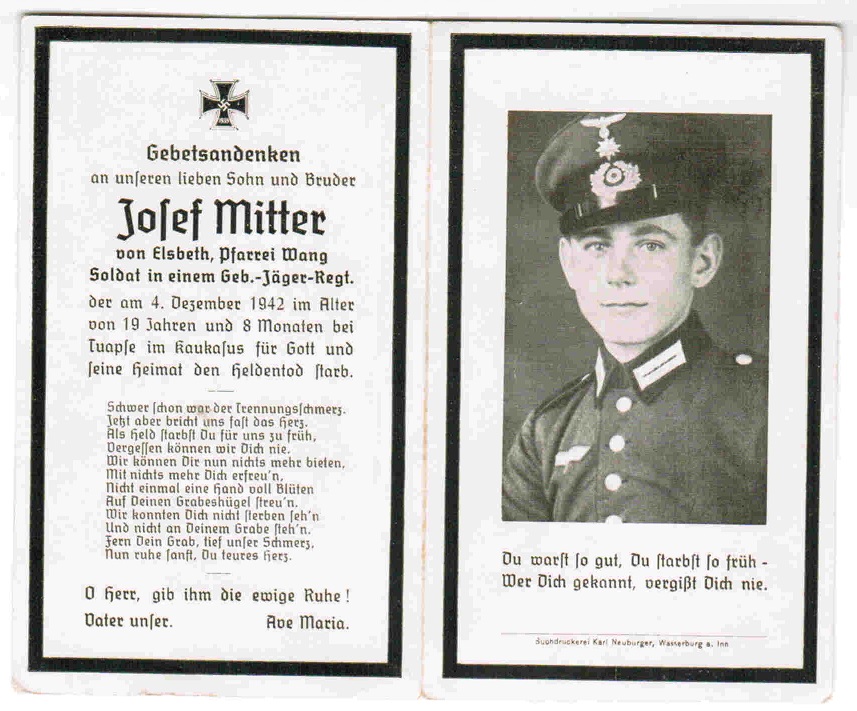 Gebetsandenken
an unseren lieben Sohn und Bruder
Josef Mitter
von Elsbeth, Pfarrei Wang
Soldat in einem Geb.-Jäger-Regt.
der am 4. Dezember 1942 im Alter
von 19 Jahren und 8 Monaten bei
Tuapse im Kaukasus für Gott und
seine Heimat den Heldentod starb.
Schwer schon war der Trennungsschmerz.
Jetzt aber bricht uns fast das Herz.
Als Held starbst Du für uns zu früh,
Vergessen können wir Dich nie.
Wir können Dir nun nichts mehr bieten,
Mit nichts mehr Dich erfreu'n,
Nicht einmal eine Hand voll Blüten
Auf Deinen Grabeshügel streu'n.
Wir konnten Dich nicht sterben seh'n
Und nicht an Deinem Grabe steh'n.
Fern Dein Grab, tief unser Schmerz,
Nun ruhe sanft, Du teures Herz.
O Herr, gib ihm die ewige Ruhe!
Vater unser. Ave Maria.
Du warst so gut, Du starbst so früh -
Wer Dich gekannt, vergißt Dich nie.
Buchdruckerei Karl Neuburger, Wasserburg a. Inn